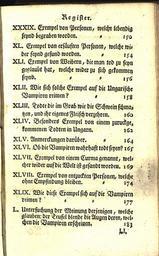 Register.
XXXIX. Exempel von Personen, welche lebendig
seynd begraben worden. 150
XL. Exempel von ersäuften Personen, welche wie-
der seynd gesund worden. 154
XLI. Exempel von Weibern, die man tod zu seyn
geglaubt hat, welche wider zu sich gekommen
seynd. 156
XLII. Wie sich solche Exempel auf die Ungarische
Vampiren reimen? 158
XLIII. Todte die im Grab wie die Schwein schma-
tzen, und ihr eigenes Fleisch verzehren. 160
XLIV. Besonder Exempel von einem
kommenen Todten in Ungarn. 162
XLV. Anmerkungen darüber. 164
XLVI. Ob die Vampiren wahrhaft todt seyen? 165
XLVII. Exempel von einem Curma genannt, wel-
cher wider auf die Welt ist gesandt worden. 169
XLVIII. Exempel von entzuckten Personen, welche
ohne Empfindung bleiben. 174
XLIX. Wie diese Exempel sich auf die Vampiren
reimen? 177
L. Untersuchung der Meinung derjenigen, welche
glauben der Teufel blende die Augen deren, wel-
chen die Vampiren erscheinen. 183